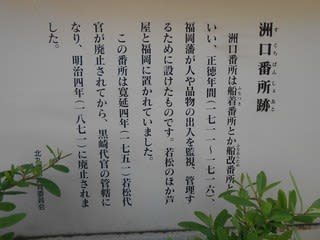 洲口番所跡
すぐちばんしょあと
洲口番所は船着番所とか船改番所と
いい、正徳年間(一七一一~一七一六)、
福岡藩が人や品物の出入を監視、管理す
るために設けたものです。若松のほか芦
屋と福岡に置かれていました。
この番所は寛延四年(一七五一)若松代
官が廃止されてから、黒崎代官の管轄に
なり、明治四年(一八七一)に廃止されま
した。
北九
委員会